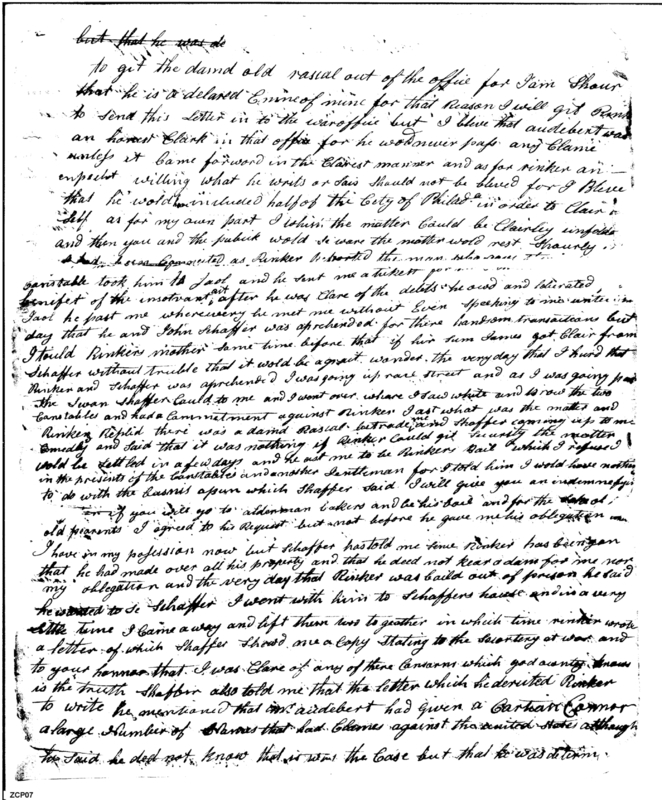 but that he was de
to git the damd old rascal out of the office for I am Shour
that he is a delared Enime of mine for that Reason I will git
to send this Letter in to the waroffice but I bleve that audebert was
an honest Clark in that office for he wod never pass any Claime
unless it Came forword in the Clarest manner and as for rinker an
willing what he writs or Sais should not be bleved for I Bleve
that he would included half of the City of Philad in order to Clair
self as for my own part I wish the matter Could be Clairley unfolded
and then you and the publick wold se ware the matter wold rest
as Rinker the man who
Canstable took him to Jaol and he sent me a tickett for
benifet of the insolvant act after he was Clare of the debts he owd and liberated
Jaol he past me wherevery he met me without Even Speeking to me untie
day that he and John Schaffer was aprehended for there handsom transactions but
I tould Rinkers mother some time before that if hir sun James got Clair from
Schaffer without truble that it wold be a grait wonder. the very day that I hurd that
Rinker and Schaffer was aprehended I was going up race Street and as I was going past
the Swan Shaffer Could to me and I went over where I saw white and the two
Canstables and had a Cammitment against Rinker I ast what was the matter and
Rinker Replid there was a damd Rascal and Shaffer comming up to me
and Said that it was nothing if Rinker Could git Security the matter
wold be Settled in a few days and he ast me to be Rinkers Bail which I refused
in the presents of the Canstables and another Jentleman for I told him I wold have nothing
to do with the busnis apun which Shaffer Said I will give you an
if you will go to alderman bakers and be his bail and for the of
old parants I agreed to his Request but not before he gave me his obligation
I have in my posession now but Schaffer has told me sence Rinker has being on
that he had made over all his property and that he deed not kear a dam for me nor
my oblegation and the very day that Rinker was baild out of preson he Said
he wanted to Se Schaffer I went with him to Schaffers hause and in a very
little time I Came away and left them two to geather in which time rinker wrote
a letter of which Shaffer Showd me a Copy Stating to the Secertery at war and
to your honnor that I was Clare of any of there Consarns which god knows
is the truth Shaffer also told me that the letter which he deructed Rinker
to write he mentioned that audebert had given a Connor
a large Number of Names that had Clames against the united States although
he Said he ded not know that it was the Case but that he was determ
ZCP07